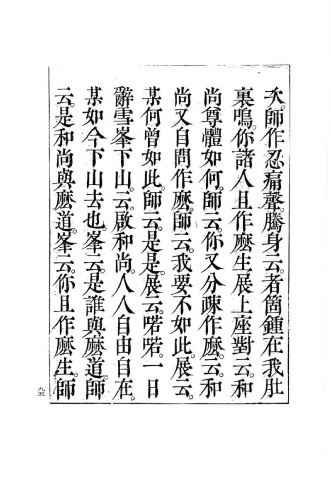 次。師作忍痛聲騰身云。者箇鍾在我肚
裏鳴。你諸人且作麼生展上座對云。和
尚尊體如何。師云。你又分疎作麼。云。和
尚又自問作麼。師云。我要不如此。展云。
某何曾如此。師云。是是。展云。喏喏。一日
辭雪峯下山。云。啟和尚。人人自由自在。
某如今下山去也。峯云。是誰與麼道。師
云。是和尚與麼道。峯云。你且作麼生。師
九三